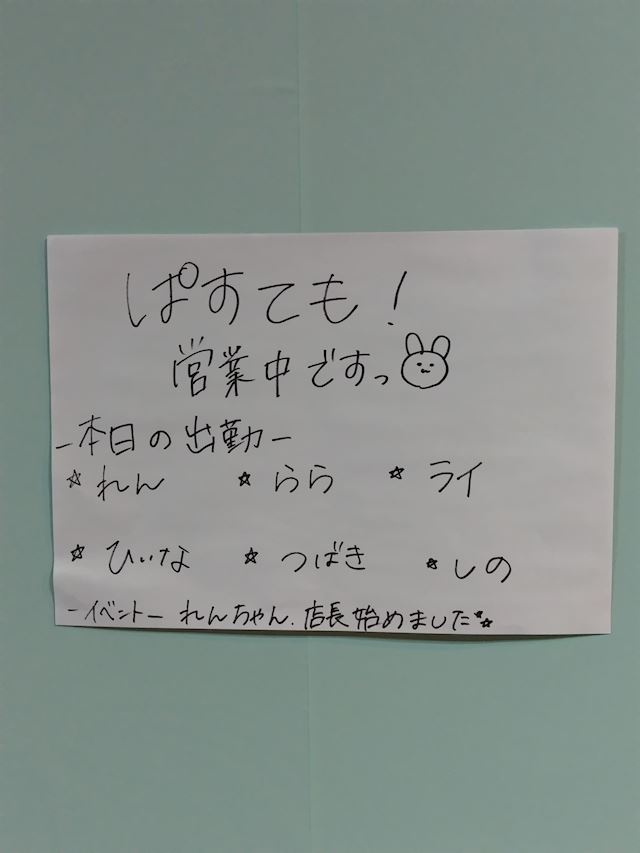 ぱすても!
営業中ですっ
-本日の出勤-
☆れん ☆らら ☆ライ
☆ひいな ☆つばき ☆しの
-イベント- れんちゃん.店長始めました☆☆